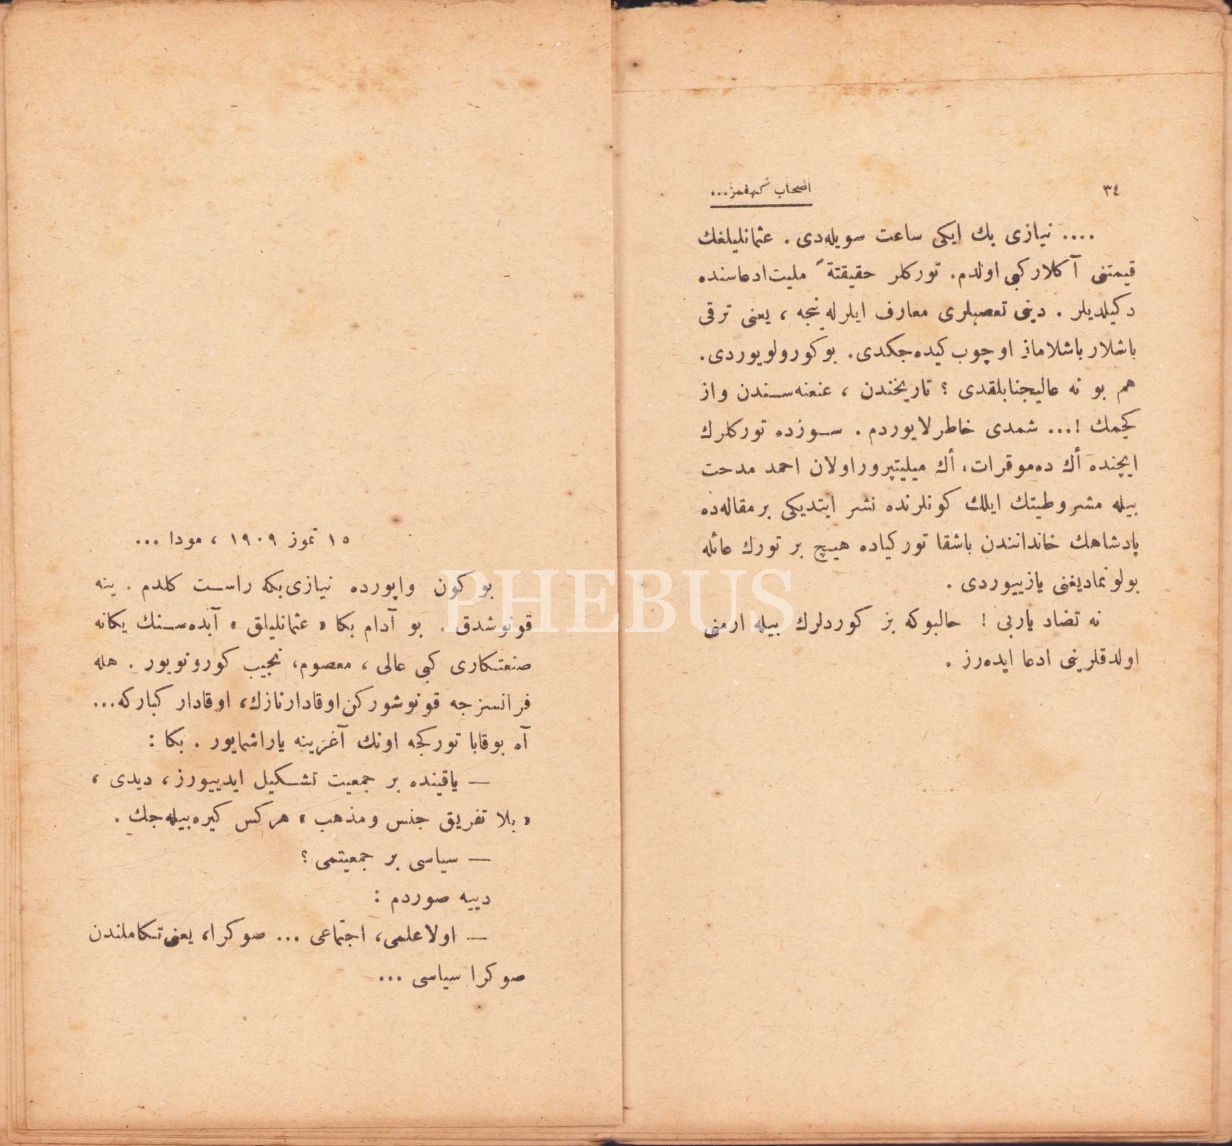 ٣٤
اصحاب كهفمز...
.... نيازى بك ايكى ساعت سويله‌دى . عثمانليلغك
قيمتنى آكلار كبى اولدم. توركلر حقيقتةً مليت ادعاسنده
دكيلديلر . دينى تعصبلرى معارف ايلرله‌ينجه ، يعنى ترقى
باشلار باشلاماز اوچوب كيده‌جكدى. بو كورولويوردى.
هم بو نه عاليجنابلقدى ؟ تاريخندن ، عنعنه‌سندن واز
كچمك !... شمدى خاطرلايوردم . سوزده توركلرك
ايچنده أك ده‌موقرات، أك ميليتپرور اولان احمد مدحت
بيله مشروطيتك ايلك كونلرنده نشر ايتديكى بر مقاله‌ده
پادشاهك خاندانندن باشقا توركياده هيچ بر تورك عائله
بولونماديغنى يازييوردى .
نه تضاد ياربى ! حالبوكه بز كوردلرك بيله ارمنى
اولدقلرينى ادعا ايده‌رز .
١٥ تموز ١٩٠٩ ، مودا ...
بو كون واپورده نيازى بكه راست كلدم . ينه
قونوشدق . بو آدام بكا « عثمانليلق » آبده‌سنك يكانه
صنعتكارى كبى عالى ، معصوم، نجيب كورونويور . هله
فرانسزجه قونوشوركن اوقادار نازك، اوقادار كباركه...
آه بو قابا توركجه اونك آغزينه ياراشمايور . بكا :
— ياقينده بر جمعيت تشكيل ايدييورز ، ديدى ،
« بلا تفريق جنس و مذهب » هركس كيره‌بيله‌جك .
— سياسى بر جمعيتمى ؟
دييه صوردم :
— اولا علمى، اجتماعى ... صوكرا، يعنى تكاملندن
صوكرا سياسى ...
PHEBUS